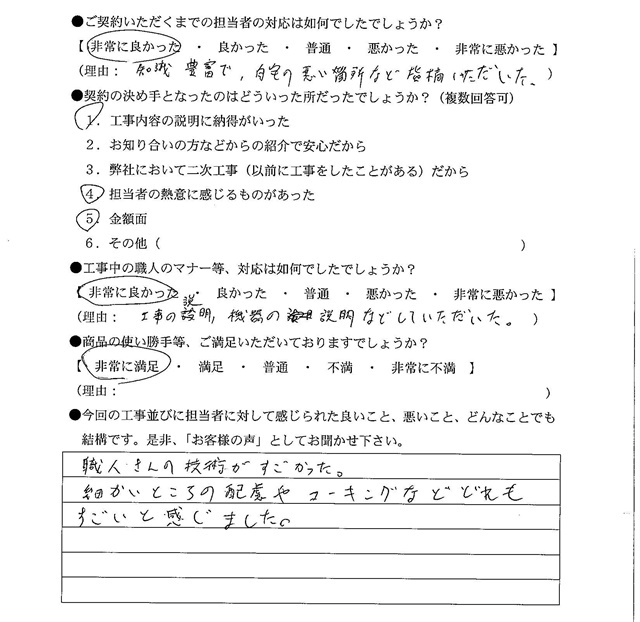 ●ご契約いただくまでの担当者の対応は如何でしたでしょうか？
【 非常に良かった ・ 良かった ・ 普通 ・ 悪かった ・ 非常に悪かった 】
（理由： 知識豊富で，自宅の悪い箇所など指摘いただいた。 ）
●契約の決め手となったのはどういった所だったでしょうか？（複数回答可）
1．工事内容の説明に納得がいった
2．お知り合いの方などからの紹介で安心だから
3．弊社において二次工事（以前に工事をしたことがある）だから
4．担当者の熱意に感じるものがあった
5．金額面
6．その他（ ）
●工事中の職人のマナー等、対応は如何でしたでしょうか？
【 非常に良かった ・ 良かった ・ 普通 ・ 悪かった ・ 非常に悪かった 】
（理由： 工事の説明，機器の説明などしていただいた。 ）
●商品の使い勝手等、ご満足いただいておりますでしょうか？
【 非常に満足 ・ 満足 ・ 普通 ・ 不満 ・ 非常に不満 】
（理由： ）
●今回の工事並びに担当者に対して感じられた良いこと、悪いこと、どんなことでも
結構です。是非、「お客様の声」としてお聞かせ下さい。
職人さんの技術がすごかった。
細かいところの配慮やコーキングなどどれも
すごいと感じました。